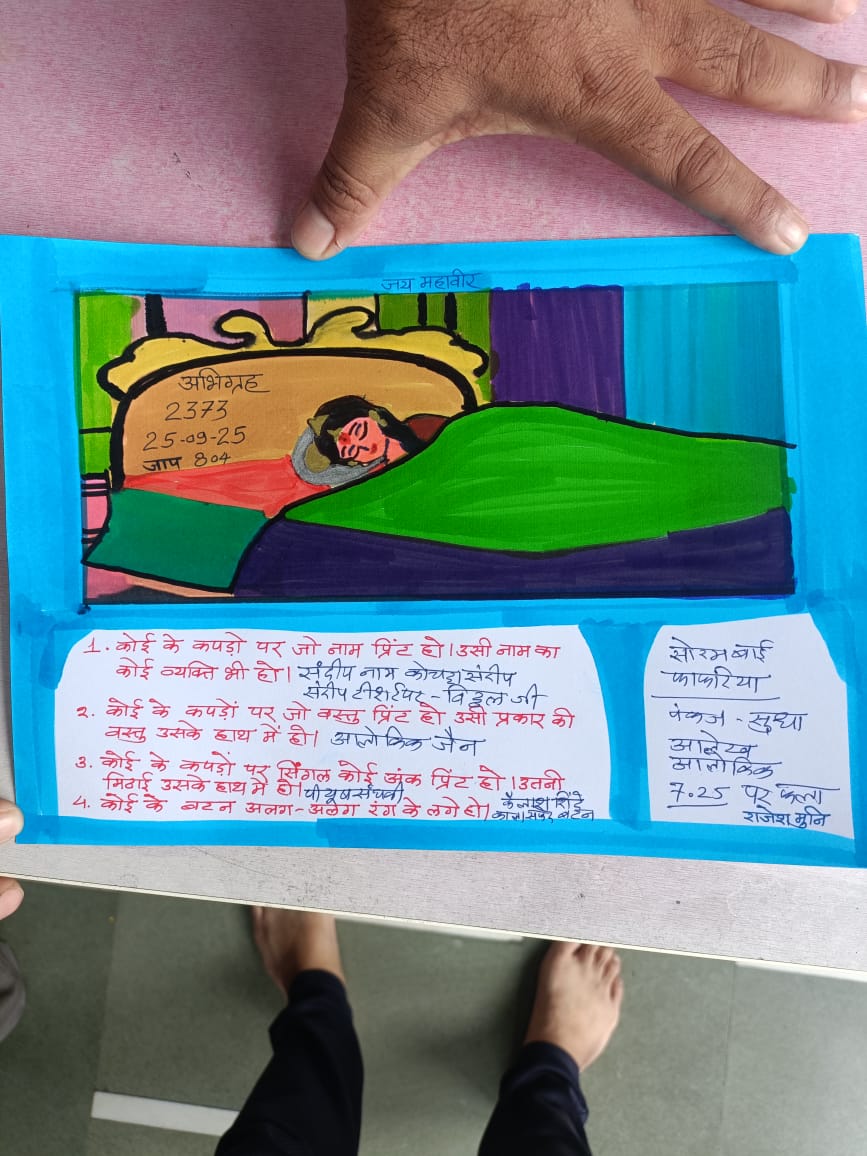 जय महावीर
अभिग्रह
2373
25-09-25
जाप 804
1. कोई के कपड़ो पर जो नाम प्रिंट हो। उसी नाम का
कोई व्यक्ति भी हो। संदीप नाम कोचड़ा संदीप
संदीप टीशर्ट पर - विठ्ठल जी
२. कोई के कपड़ों पर जो वस्तु प्रिंट हो उसी प्रकार की
वस्तु उसके हाथ में हो। आलोकिक जैन
3. कोई के कपड़ों पर सिंगल कोई अंक प्रिंट हो। उतनी
मिठाई उसके हाथ में हो। पीयूष संघवी
4. कोई के बटन अलग-अलग रंग के लगे हो। कैलाश शिंदे
काला सफेद बटन
सोरम बाई
फाफरिया
पंकज - सुधा
आलेख
आलोकिक
7.25 पर फला
राजेश मुनि